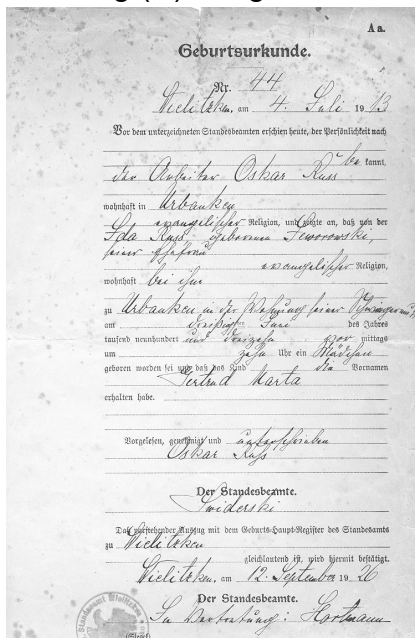 Aa.
Geburtsurkunde.
Nr. 44
Wielitzken, am 4. Juli 1913
Vor dem unterzeichneten Standesbeamten erschien heute, der Persönlichkeit nach
bekannt,
der Arbeiter Oskar Russ
wohnhaft in Urbanken
evangelischer Religion, und zeigte an, daß von der
Ida Russ geborenen Jeworovski,
seiner Ehefrau
evangelischer Religion,
wohnhaft bei ihm
zu Urbanken in der Wohnung seiner
am dreißigsten Juni des Jahres
tausend neunhundert und dreizehn vor mittags
um zehn Uhr ein Mädchen
geboren worden sei und daß das Kind die Vornamen
Gertrud Marta
erhalten habe.
Vorgelesen, genehmigt und unterschrieben
Oskar Russ
Der Standesbeamte.
Swiderski
Daß vorstehender Auszug mit dem Geburts-Haupt-Register des Standesamts
zu Wielitzken
gleichlautend ist, wird hiermit bestätigt.
Wielitzken, am 12. September 1926
Der Standesbeamte.
In Vertretung: Hartmann
(Siegel)